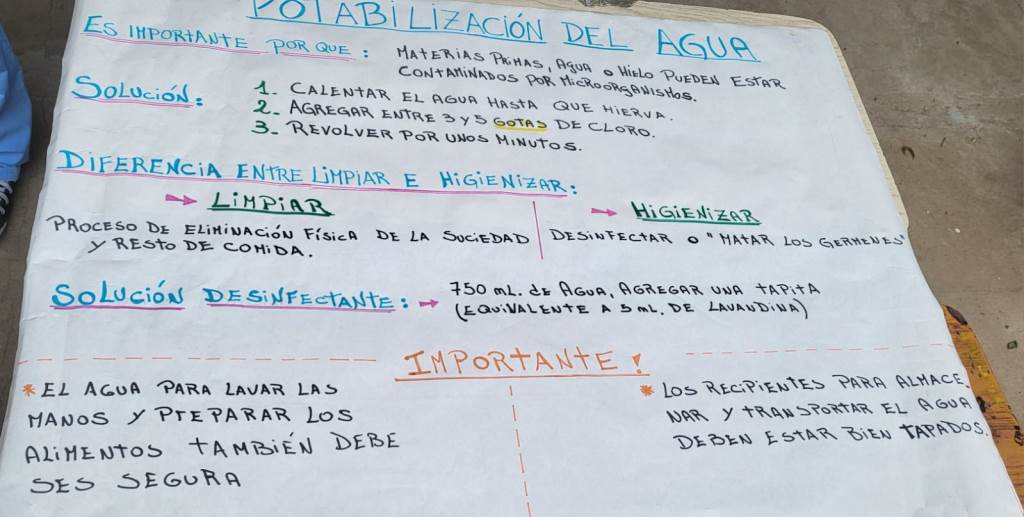 POTABILIZACIÓN DEL AGUA
ES IMPORTANTE POR QUE: MATERIAS PRIMAS, AGUA O HIELO PUEDEN ESTAR
CONTAMINADOS POR MICROORGANISMOS.
SOLUCIÓN: 1. CALENTAR EL AGUA HASTA QUE HIERVA.
2. AGREGAR ENTRE 3 Y 5 GOTAS DE CLORO.
3. REVOLVER POR UNOS MINUTOS.
DIFERENCIA ENTRE LIMPIAR E HIGIENIZAR:
LIMPIAR
PROCESO DE ELIMINACIÓN FÍSICA DE LA SUCIEDAD
Y RESTO DE COMIDA.
HIGIENIZAR
DESINFECTAR O "MATAR LOS GERMENES"
SOLUCIÓN DESINFECTANTE: 750 ML. DE AGUA, AGREGAR UNA TAPITA
(EQUIVALENTE A 5 ML. DE LAVANDINA)
IMPORTANTE!
* EL AGUA PARA LAVAR LAS
MANOS Y PREPARAR LOS
ALIMENTOS TAMBIÉN DEBE
SES SEGURA
* LOS RECIPIENTES PARA ALMACE.
NAR Y TRANSPORTAR EL AGUA
DEBEN ESTAR BIEN TAPADOS.